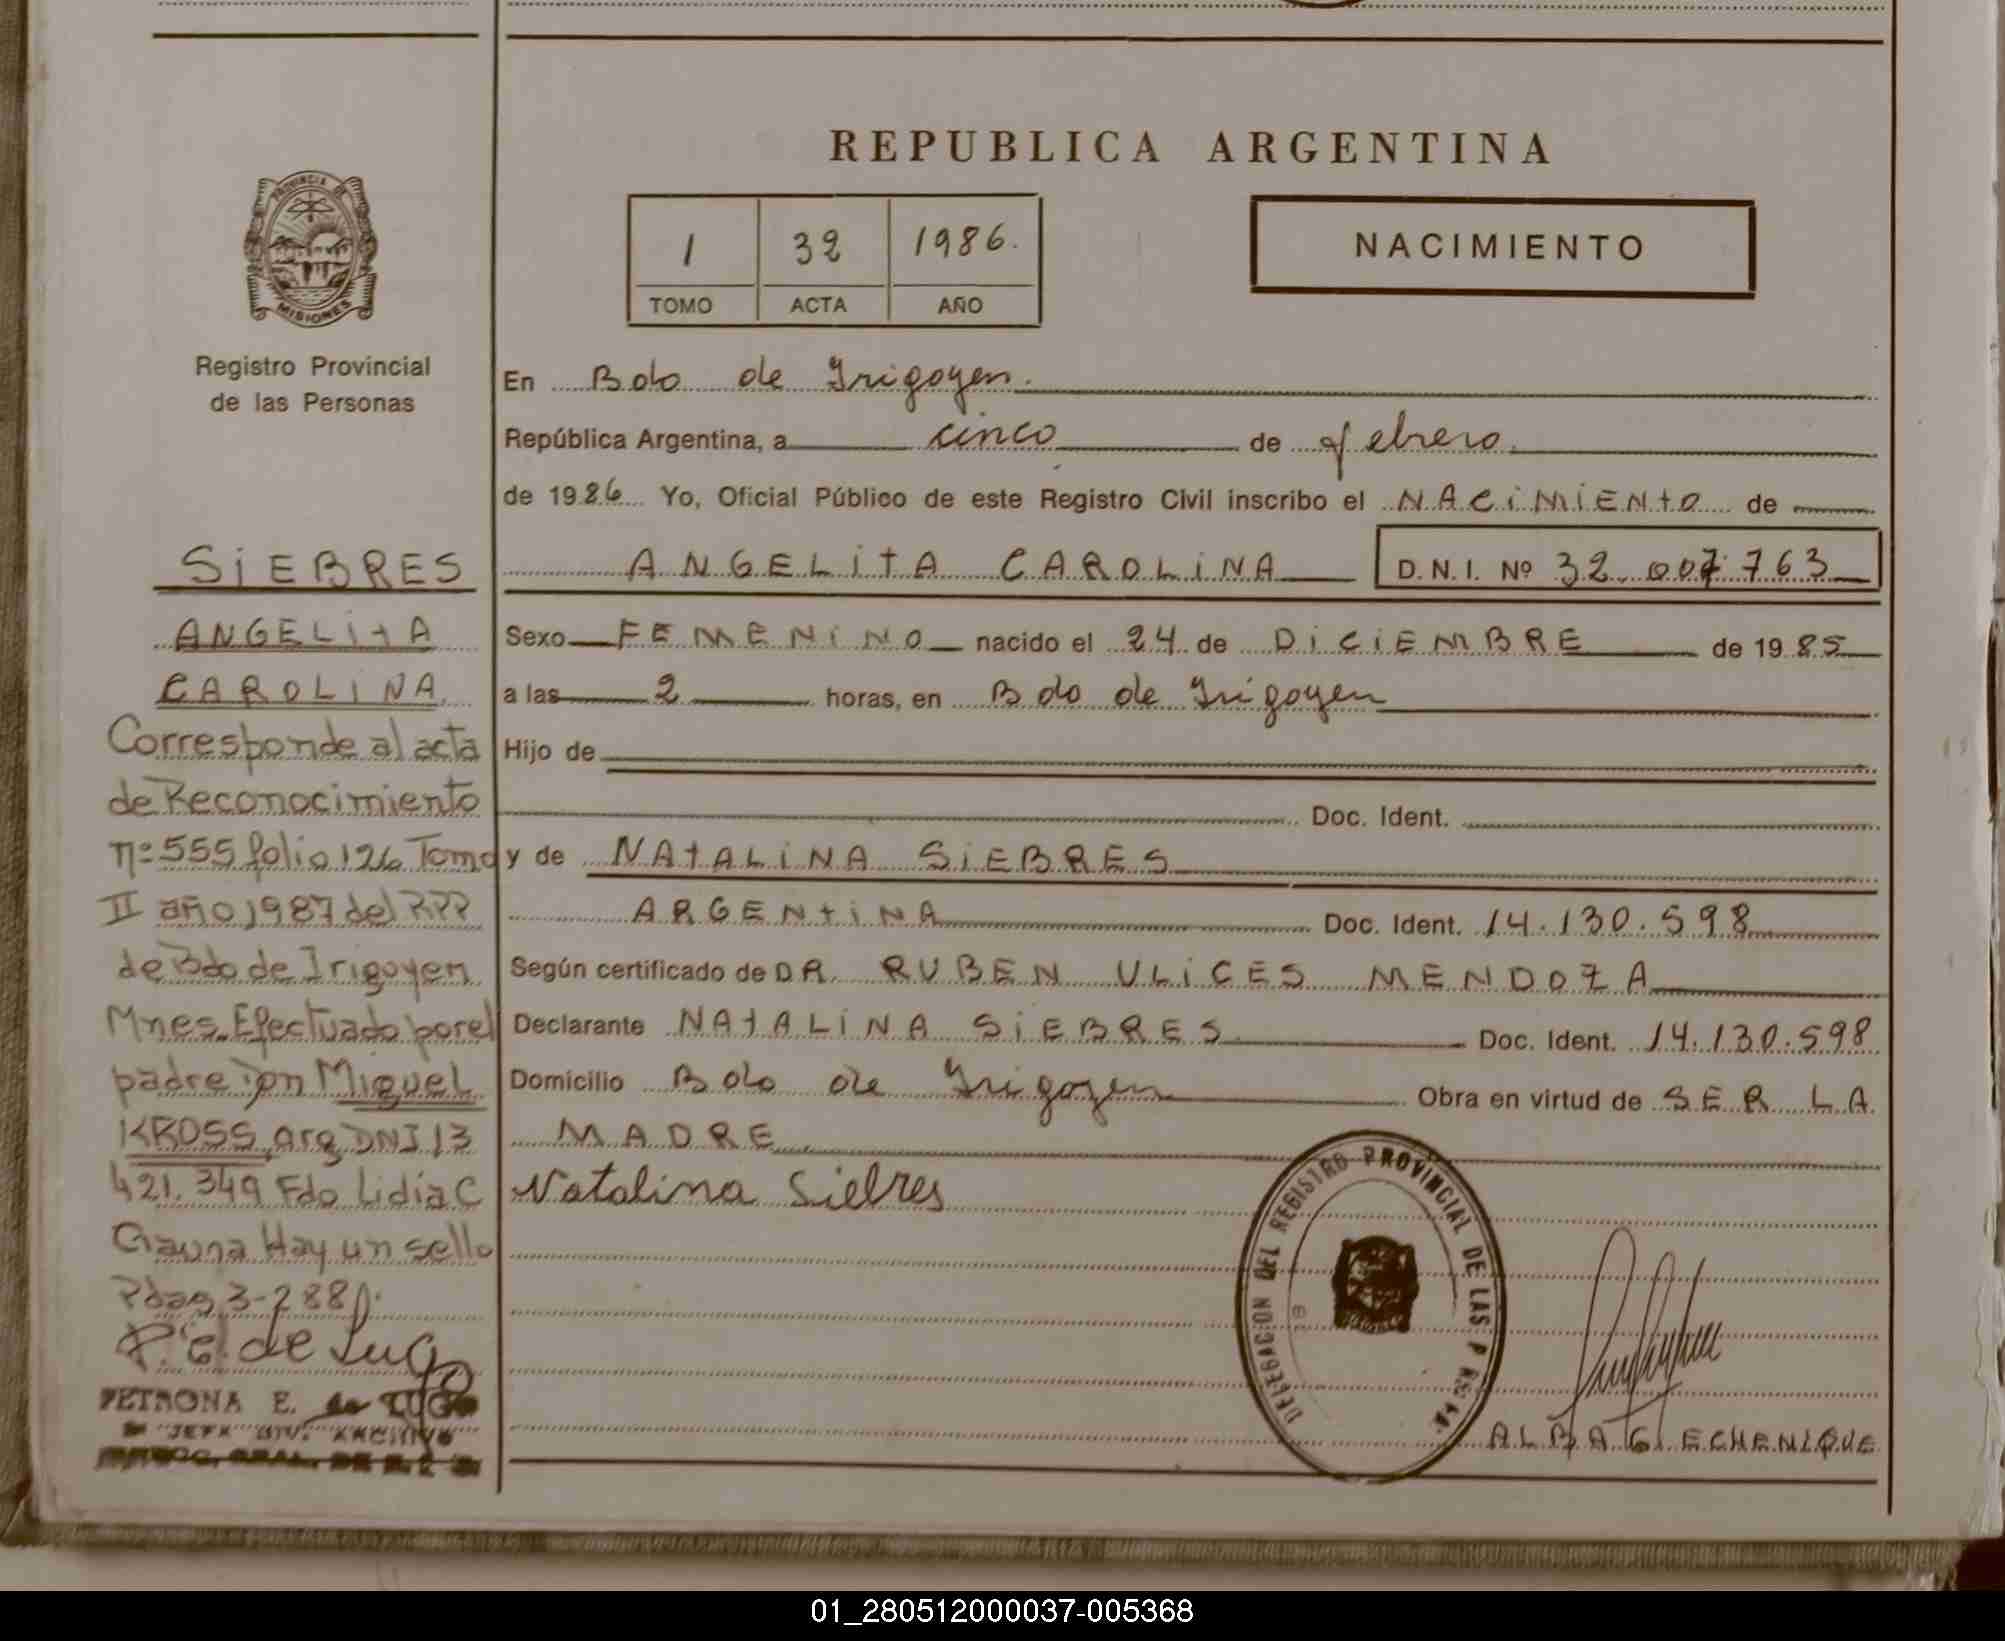 REPUBLICA ARGENTINA
PROVINCIA DE
MISIONES
Registro Provincial
de las Personas
1 32 1986.
TOMO ACTA AÑO
NACIMIENTO
En Bdo de Irigoyen.
República Argentina, a cinco de febrero.
de 1986 Yo, Oficial Público de este Registro Civil inscribo el NACIMIENTO de
ANGELITA CAROLINA D.N.I. Nº 32.007.763
Sexo FEMENINO nacido el 24 de DICIEMBRE de 1985
a las 2 horas, en Bdo de Irigoyen
Hijo de
Doc. Ident.
y de NATALINA SIEBRES
ARGENTINA Doc. Ident. 14.130.598
Según certificado de DR. RUBEN ULICES MENDOZA
Declarante NATALINA SIEBRES Doc. Ident. 14.130.598
Domicilio Bdo de Irigoyen Obra en virtud de SER LA
MADRE
Natalina Siebres
DELEGACION DEL REGISTRO PROVINCIAL DE LAS
ALBA G. ECHENIQUE
SIEBRES
ANGELITA
CAROLINA
Corresponde al acta
de Reconocimiento
nº 555 folio 126 Tomo
II año 1987 del RPP
de Bdo de Irigoyen
Mnes. Efectuado por el
padre don Miguel
KROSS, arg DNI 13
421.349 Fdo Lidia C
Gauna Hay un sello
Pdas 3-2 88
P. E. de Lugo
PETRONA E. de LUGO
JEFA DIV. ARCHIVO
01_280512000037-005368